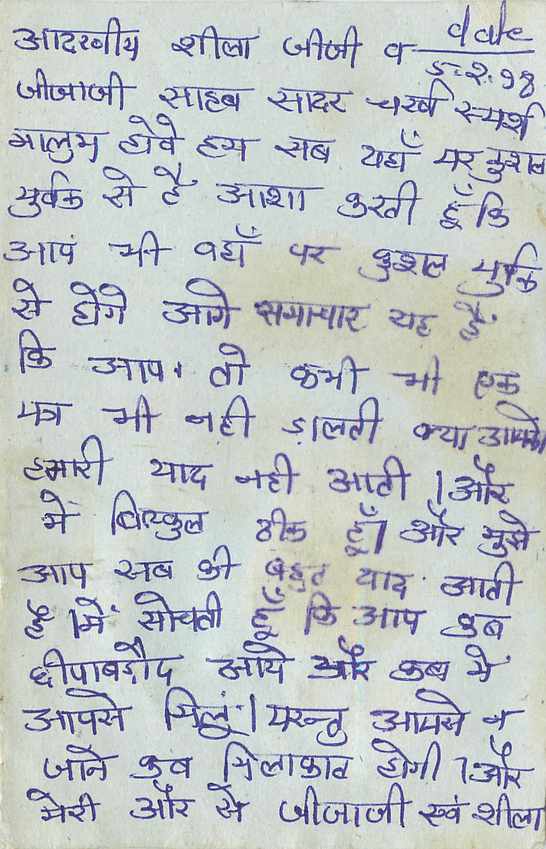 आदरणीय शीला जीजी व date
5.2.98
जीजाजी साहब सादर चरण स्पर्श
मालुम होवे हम सब यहाँ पर कुशल
पुर्वक से हैं आशा करती हूँ कि
आप भी वहाँ पर कुशल पुर्वक
से होंगे आगे समाचार यह है
कि आप तो कभी भी एक
पत्र भी नही डालती क्या आपको
हमारी याद नही आती । और
में बिल्कुल ठीक हूँ। और मुझे
आप सब की बहुत याद आती
है । में सोचती हूँ कि आप कब
छीपाबडौद आये और कब में
आपसे मिलुं । परन्तु आपसे न
जाने कब मिलाकात होगी । और
मेरी और से जीजाजी एवं शीला